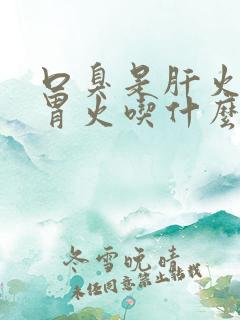 口臭是肝火
胃火喫什麽
冬雪晚晴
未经同意禁止转载